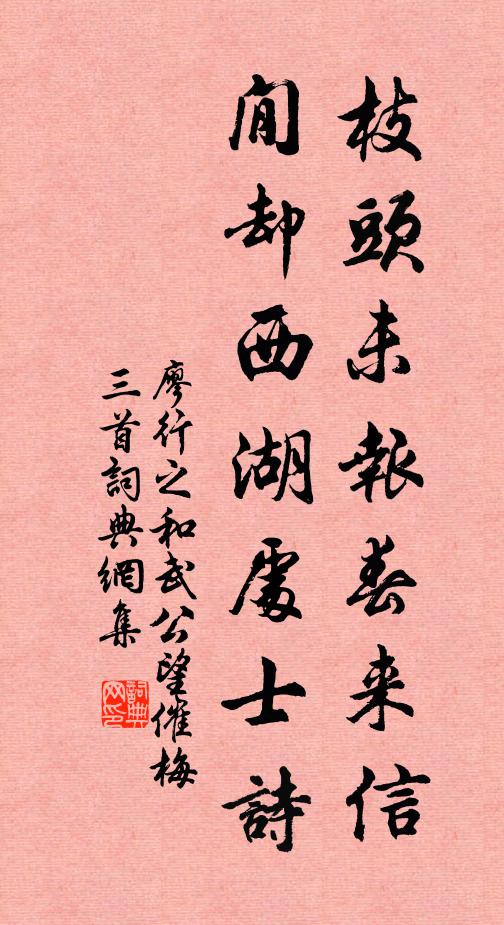 枝頭未報春来信
閒却西湖處士詩
廖行之和武公望催梅
三首詞典網集
詞典
网印